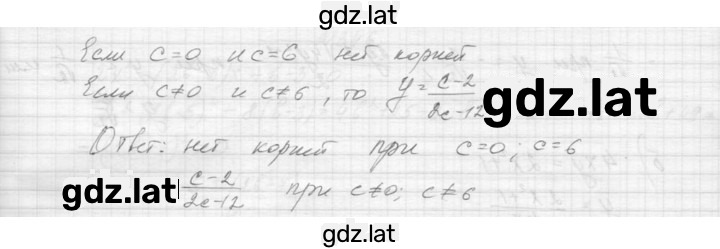 gdz.lat
Если c=0 и c=6 нет корней
Если c≠0 и c≠6, то y=(c-2)/(2c-12)
gdz.lat
Ответ: нет корней при c=0; c=6
gdz.lat (c-2)/(2c-12) при c≠0; c≠6
gdz.lat